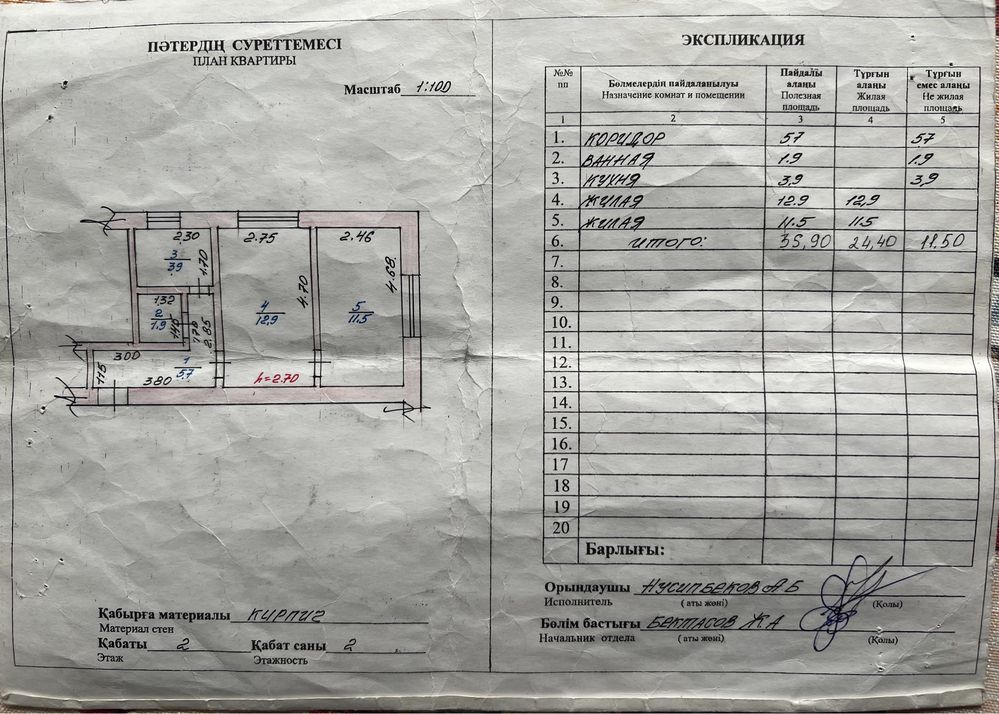 ПӘТЕРДІҢ СУРЕТТЕМЕСІ
ПЛАН КВАРТИРЫ
Масштаб 1:100
2.30
2.75
2.46
3
39
1.70
4.70
4.68
132
2
1.9
140
170
2.85
4
12.9
5
11.5
300
1
5.7
115
380
h=2.70
Қабырға материалы КИРПИГ
Материал стен
Қабаты 2 Қабат саны 2
Этаж Этажность
ЭКСПЛИКАЦИЯ
№№ пп Бөлмелердің пайдаланылуы Назначение комнат и помещении Пайдалы алаңы Полезная площадь Тұрғын алаңы Жилая площадь Тұрғын емес алаңы Не жилая площадь
1 2 3 4 5
1. КОРИДОР 57 57
2. ВАННАЯ 1.9 1.9
3. КУХНЯ 3,9 3,9
4. ЖИЛАЯ 12.9 12,9
5. ЖИЛАЯ 11.5 11.5
6. ИТОГО: 35,90 24,40 11.50
7.
8.
9.
10.
11.
12.
13.
14.
15.
16.
17
18
19
20
Барлығы:
Орындаушы НУСИПБЕКОВ А Б
Исполнитель ( аты жөні) (Қолы)
Бөлім бастығы БЕКТАСОВ Ж А
Начальник отдела (аты жөні) (Қолы)